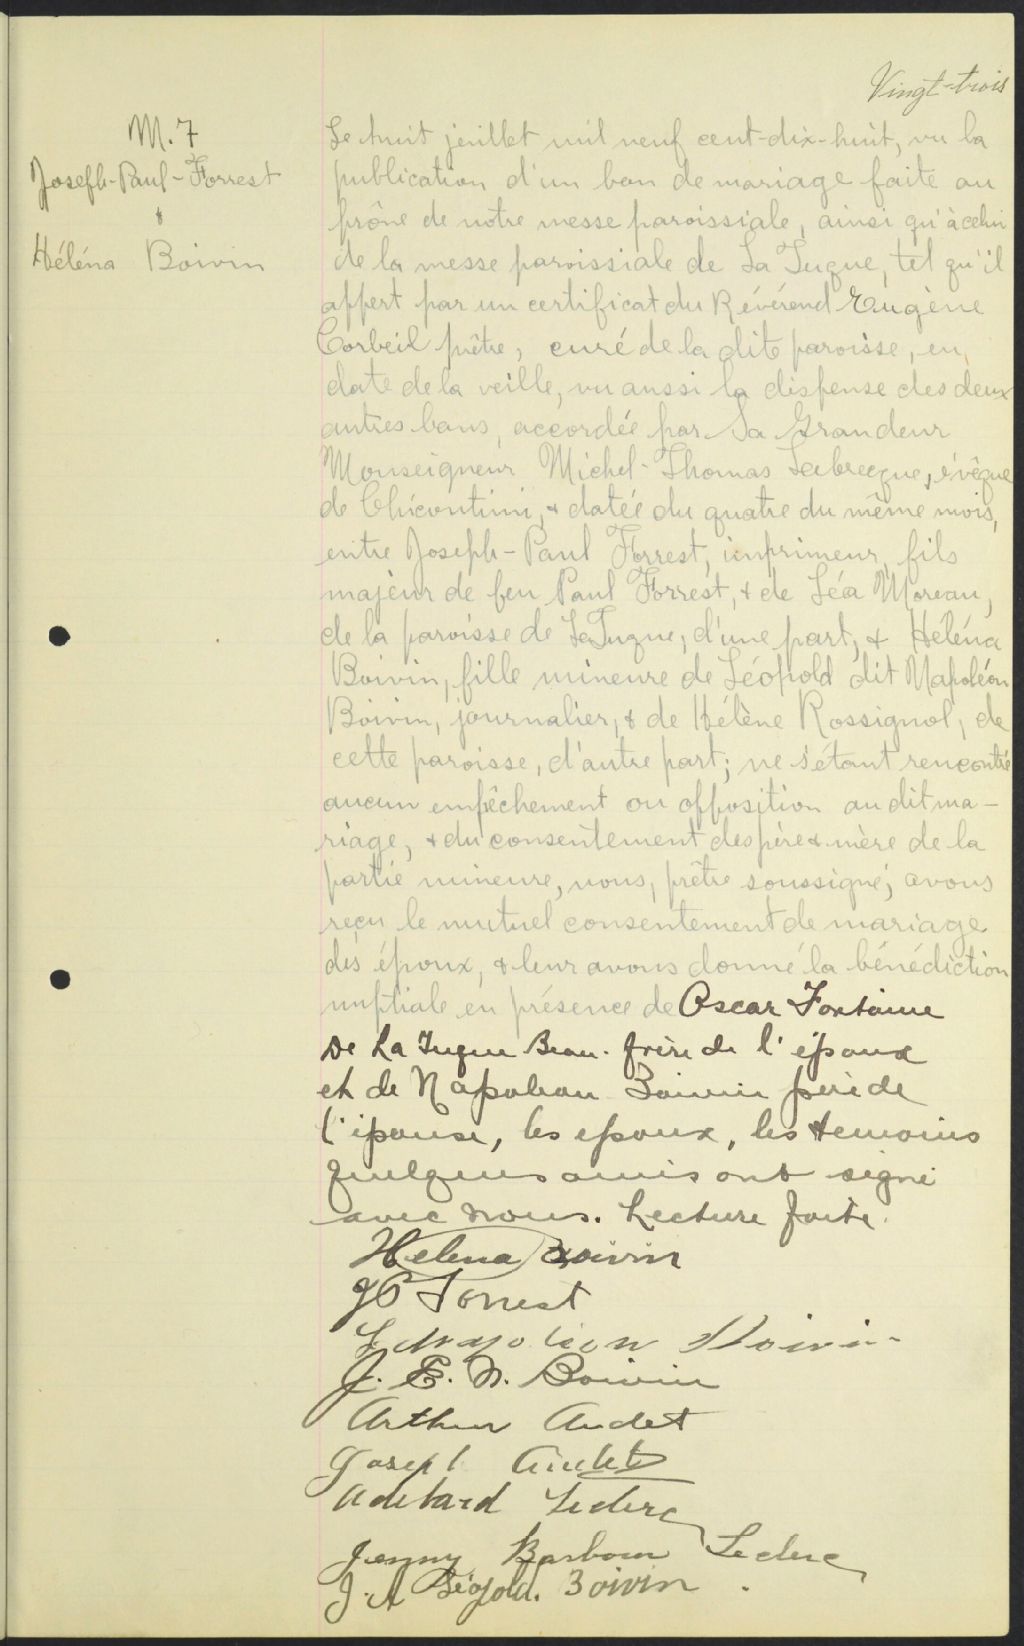 Vingt-trois
M. 7
Joseph-Paul-Forrest
&
Héléna Boivin
Le huit juillet mil neuf cent-dix-huit, vu la
publication d'un ban de mariage faite au
prône de notre messe paroissiale, ainsi qu'à celui
de la messe paroissiale de La Tuque, tel qu'il
appert par un certificat du Révérend Eugène
Corbeil prêtre, curé de la dite paroisse, en
date de la veille, vu aussi la dispense des deux
autres bans, accordée par Sa Grandeur
Monseigneur Michel-Thomas Labrecque, évêque
de Chicoutimi, & datée du quatre du même mois,
entre Joseph-Paul Forrest, imprimeur, fils
majeur de feu Paul Forrest, & de Léa Moreau,
de la paroisse de La Tuque, d'une part, & Héléna
Boivin, fille mineure de Léopold dit Napoléon
Boivin, journalier, & de Hélène Rossignol, de
cette paroisse, d'autre part; ne s'étant rencontré
aucun empêchement ou opposition au dit ma-
riage, & du consentement des père & mère de la
partie mineure, nous, prêtre soussigné, avons
reçu le mutuel consentement de mariage
des époux, & leur avons donné la bénédiction
nuptiale en présence de Oscar Fontaine
De La Tuque Beau-frère de l'époux
et de Napoleon Boivin père de
l'épouse, les epoux, les temoins
quelques amis ont signé
avec nous. Lecture faite.
Helena Boivin
JP Forrest
L Napoleon Boivin
J. E. N. Boivin
Arthur Audet
Joseph Audet
Adelard Leclerc
Jenny Barbour Leclerc
J. A Léopold. Boivin